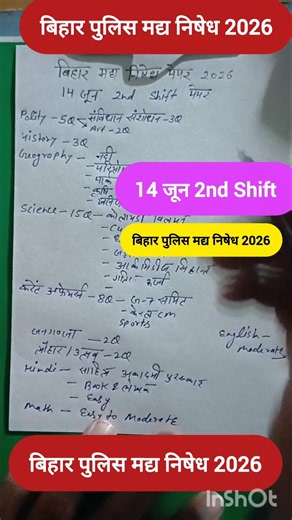 बिहार पुलिस मद्य निषेध 2026
बिहार मद्य निषेध पेपर 2026
14 जून 2nd Shift पेपर
Polity - 5Q संविधान संशोधन - 3Q
Art - 2Q
History - 3Q
Geography - नदी
14 जून 2nd Shift
Science - 15Q -
बिहार पुलिस मद्य निषेध 2026
करेंट अफेयर्स - 8Q - G-7 समिट
केरल CM
Sports
जनगणना - 2Q
त्यौहार / उत्सव - 2Q
English -
moderate
Hindi - साहित्य अकादमी पुरस्कार
- Book & लेखक
- Easy
Math - Easy to Moderate
बिहार पुलिस मद्य निषेध 2026
InShOt